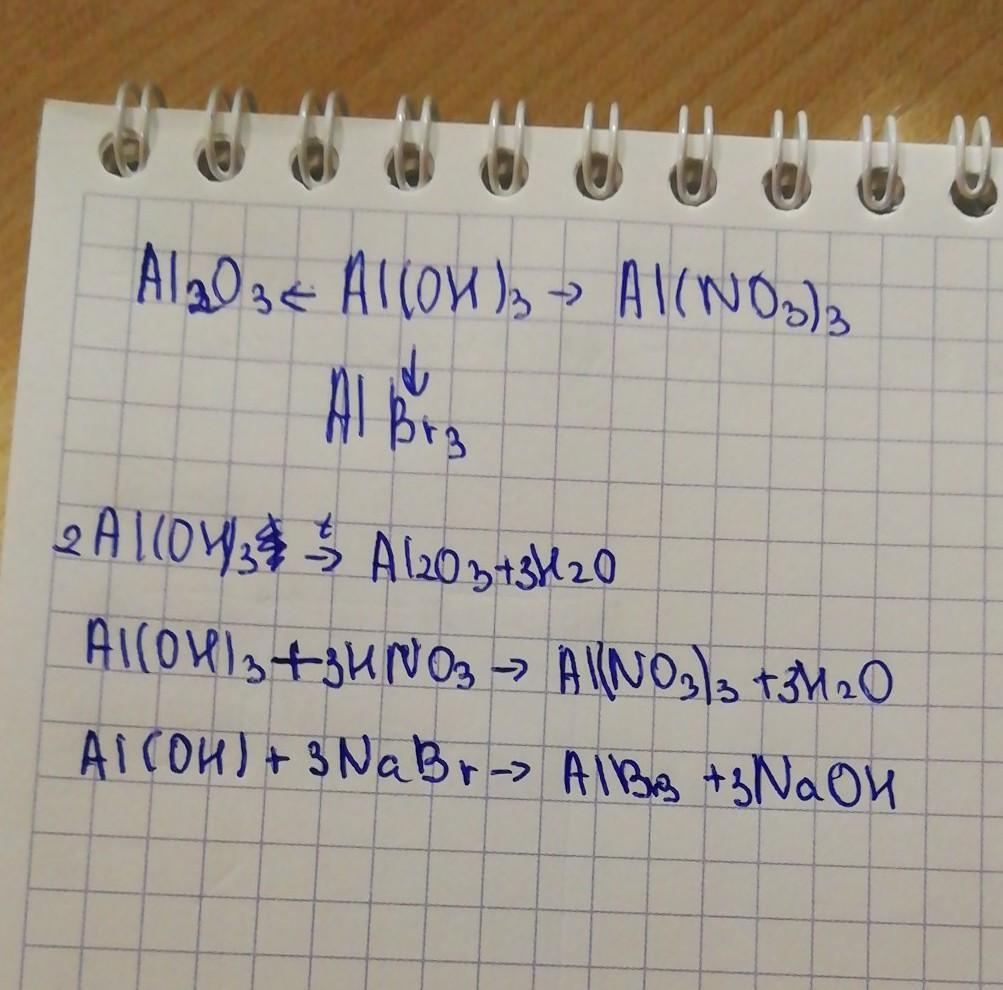 Al2O3 ← Al(OH)3 → Al(NO3)3
↓
AlBr3
2Al(OH)3 t→ Al2O3+3H2O
Al(OH)3+3HNO3 → Al(NO3)3+3H2O
Al(OH)+3NaBr → AlBr3+3NaOH